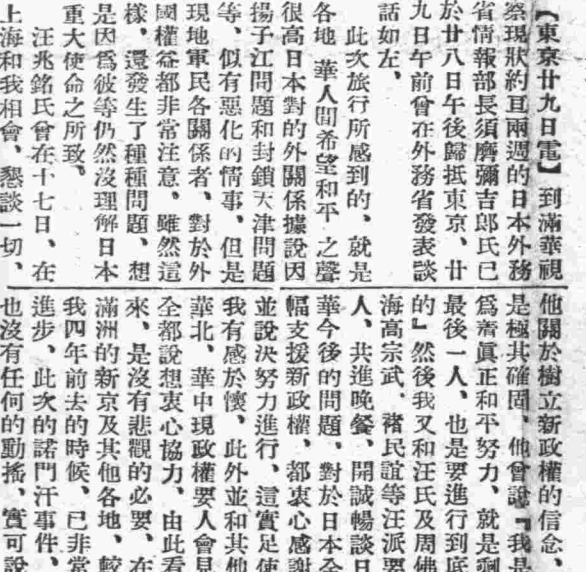 【東京廿九日電】到滿華視
察現狀約亘兩週的日本外務
省情報部長須磨彌吉郎氏已
於廿八日午後歸抵東京、廿
九日午前曾在外務省發表談
話如左、
此次旅行所感到的、就是
各地 華人間希望和平 之聲
很高日本對的外關係據說因
揚子江問題和封鎖天津問題
等、似有惡化的情事、但是
現地軍民各關係者、對於外
國權益都非常注意、雖然這
樣、還發生了種種問題、想
是因爲彼等仍然沒理解日本
重大使命之所致。
汪兆銘氏曾在十七日、在
上海和我相會、懇談一切、
他關於樹立新政權的信念、
是極其確固、他曾說『我是
爲着眞正和平努力、就是剩
最後一人、也是要進行到底
的』然後我又和汪氏及周佛
海高宗武、褚民誼等汪派要
人、共進晚餐、開誠暢談日
華今後的問題、對於日本全
幅支援新政權、都衷心感謝
並說決努力進行、這實足使
我有感於懷、此外並和其他
華北、華中現政權要人會見
全都說想衷心協力、由此看
來、是沒有悲觀的必要、在
滿洲的新京及其他各地、較
我四年前去的時候、已非常
進步、此次的諾門汗事件、
也沒有任何的動搖、實可說